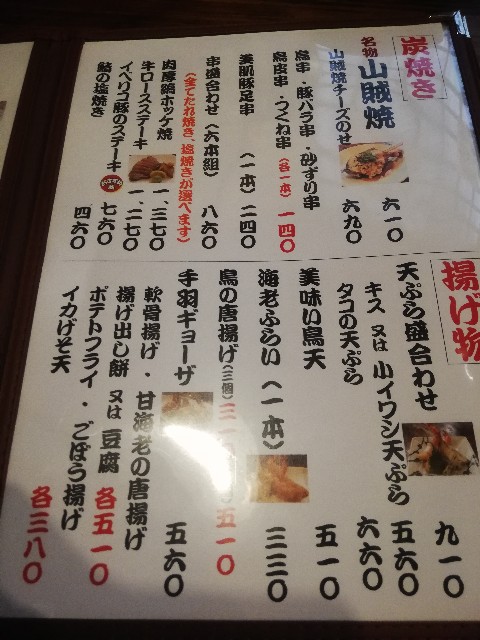 炭焼き
名物 山賊焼 六一〇
山賊焼チーズのせ 六九〇
鳥串・豚バラ串・砂ずり串
鳥皮串・つくね串 (各一本) 一四〇
美肌豚足串 (一本) 二四〇
串盛合わせ(六本組) 八六〇
(全てたれ焼き、塩焼きが選べます)
肉厚縞ホッケ焼 一、三七〇
牛ロースステーキ 一、二七〇
イベリコ豚のステーキ 七六〇
鮎の塩焼き 四六〇
揚げ物
天ぷら盛合わせ 九一〇
キス 又は 小イワシ天ぷら 五六〇
タコの天ぷら 六六〇
美味い鳥天 五一〇
海老ふらい(一本) 三三〇
鳥の唐揚げ(三個) 五一〇
手羽ギョーザ 五六〇
軟骨揚げ・甘海老の唐揚げ
揚げ出し餅 又は 豆腐 各五一〇
ポテトフライ・ごぼう揚げ
イカげそ天 各三八〇